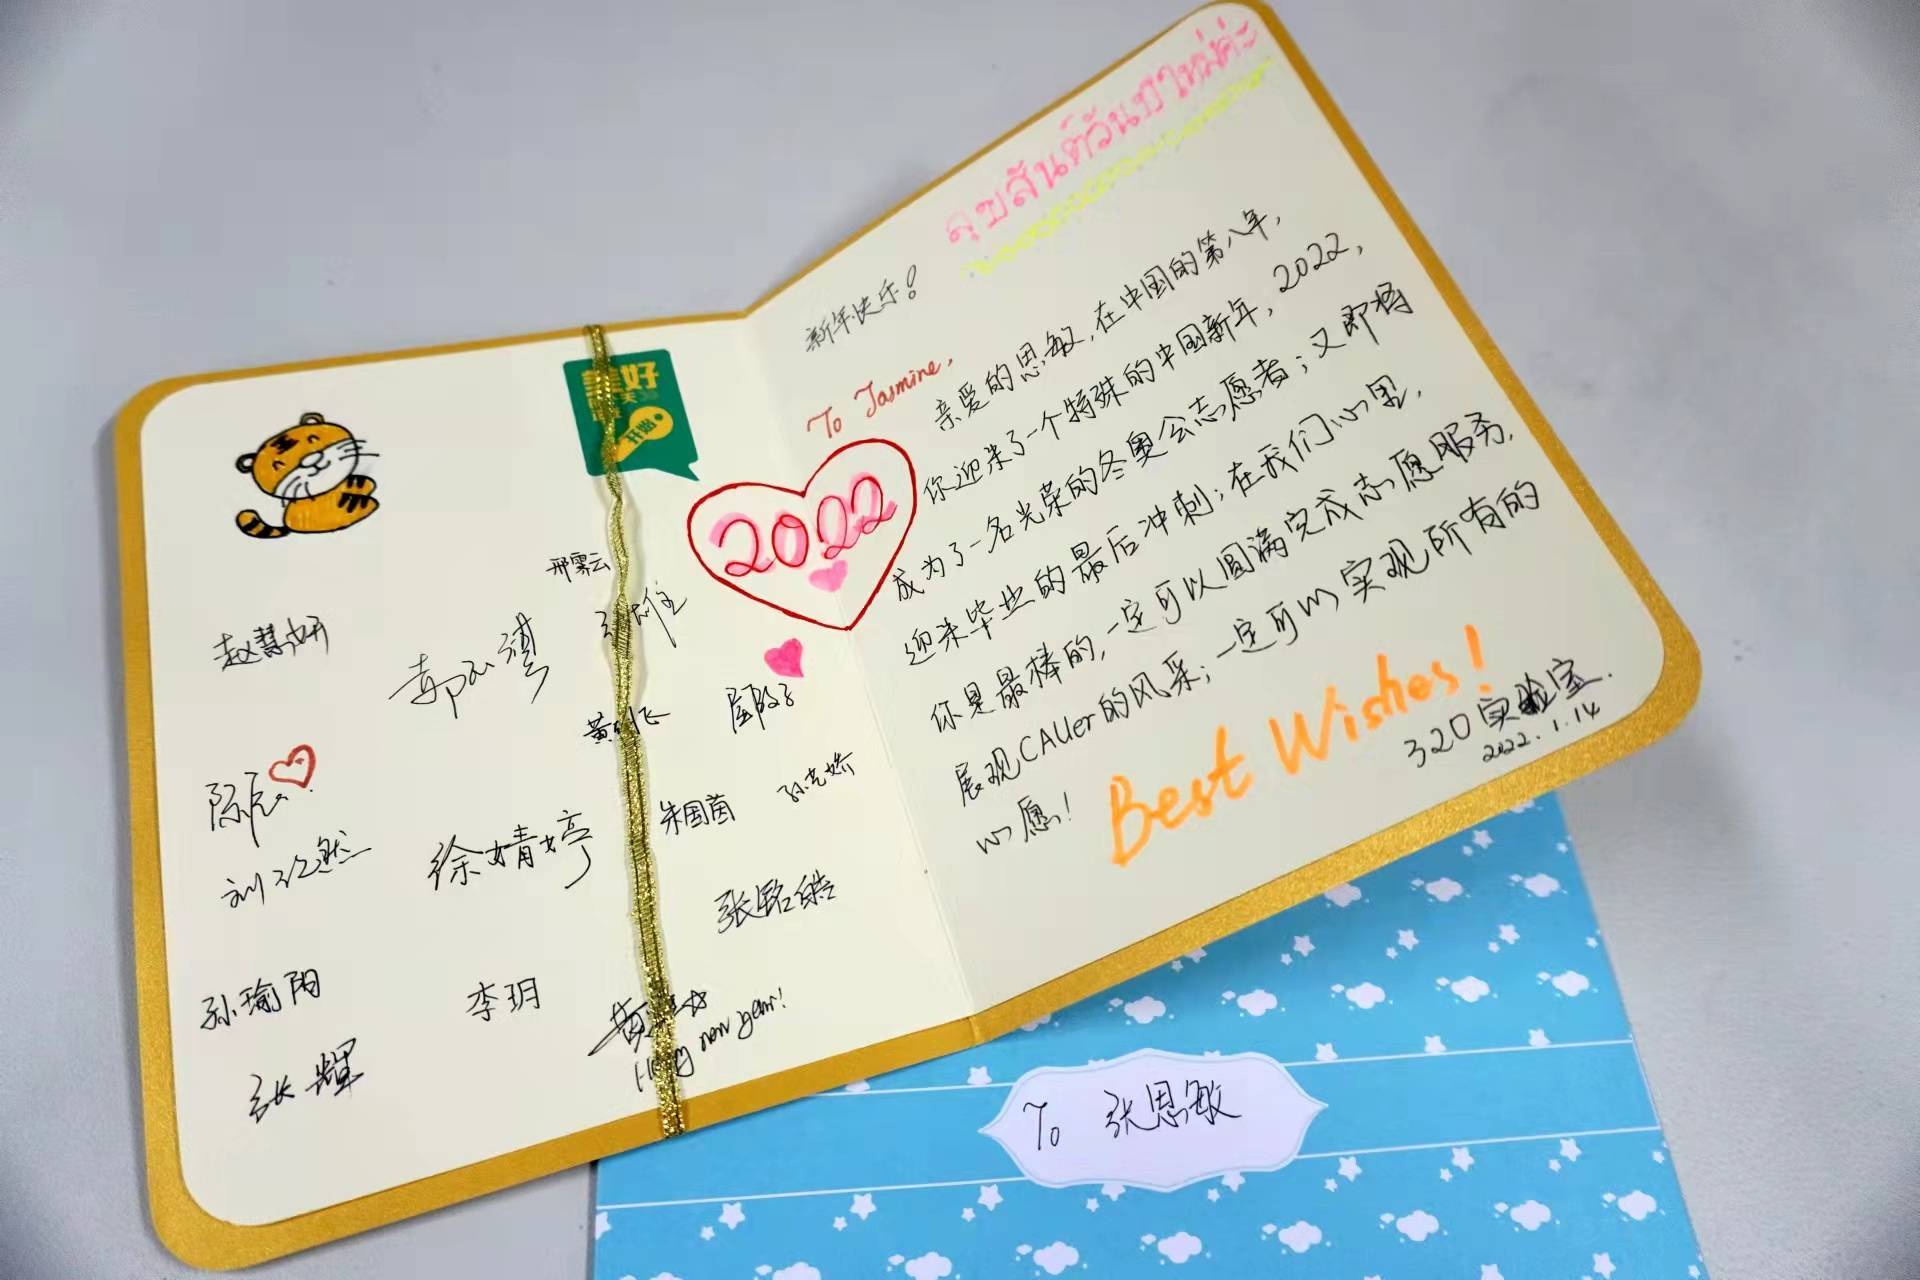 สุขสันต์วันปีใหม่ค่ะ
新年快乐!
To Jasmine,
亲爱的思敏,在中国的第八年,
你迎来了一个特殊的中国新年,2022,
成为了一名光荣的冬奥会志愿者;又即将
迎来毕业的最后冲刺;在我们心里,
你是最棒的,一定可以圆满完成志愿服务,
展现CAUer的风采;一定可以实现所有的
心愿!
Best Wishes!
320实验室.
2022.1.14
2022
美好
开始
赵慧妍
陈辰
徐婧婷
朱国茵
孙瑜阳
李玥
张辉
new year!
To 张思敏